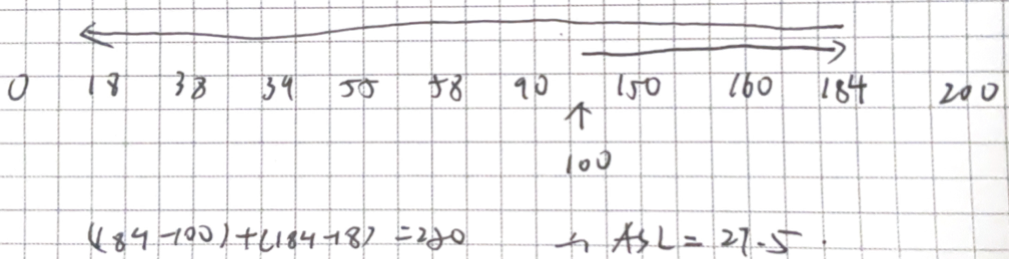 0 18 38 39 55 58 90 150 160 184 200
100
(184-100)+(184-18) =250 ASL = 27.5.